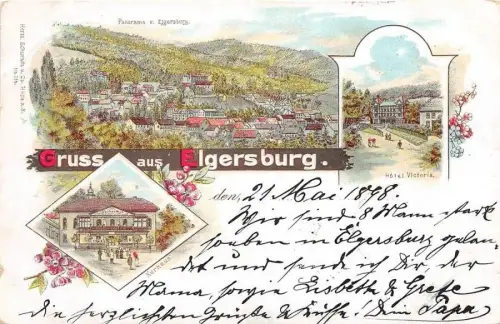 Panorama v. Elgersburg.
Gruss aus Elgersburg.
Hôtel Victoria.
Kurhaus
den, 21 Mai 1898.
Wir sind 8 Mann stark
soeben in Elgersburg gelan-
det und sende ich Dir der
Mama, sowie Lisbeth & Grete
die herzlichsten Grüße u Küsse! Dein Papa